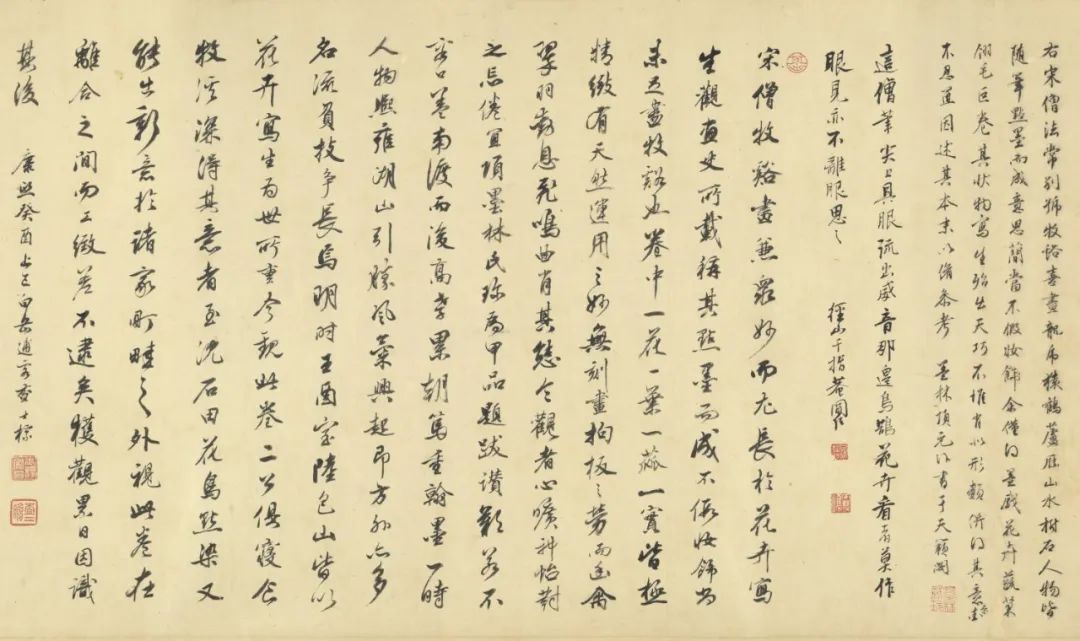 右宋僧法常別號牧谿喜畫龍虎猿鶴蘆雁山水樹石人物皆
隨筆點墨而成意思簡當不假妝飾余僅得墨戲花卉蔬菓
翎毛巨卷其狀物寫生殆出天巧不惟肖似形類併得其意
不忍置因述其本末以俟參考 墨林項元汴書于天籟閣
這僧筆尖上具眼流出威音那邊烏鵲花卉看者莫作
眼見亦不離眼思之 徑山千指菴圓信
宋僧牧谿畫兼眾妙而尤長於花卉寫
生觀畫史所載稱其點墨而成不假妝飾尚
未足盡牧谿也卷中一花一葉一蓏一實皆極
精緻有天然運用之妙無刻畫拘板之勞而幽禽
翠羽動息飛鳴曲肖其態令觀者心曠神怡對
之忘倦宜項墨林氏珍為甲品題跋讚歎若不
容口蓋南渡而後高孝累朝篤重翰墨一時
人物熙雍湖山引勝風氣興起即方外亦多
名流負技爭長焉明時王酉室陸包山皆以
花卉寫生為世所重今觀此卷二公俱寢食
牧溪深得其意者至沈石田花鳥點染又
能出新意於諸家町畦之外視此卷在
離合之間而工緻若不逮矣獲觀累日因識
其後 康熙癸酉 白岳 查士標